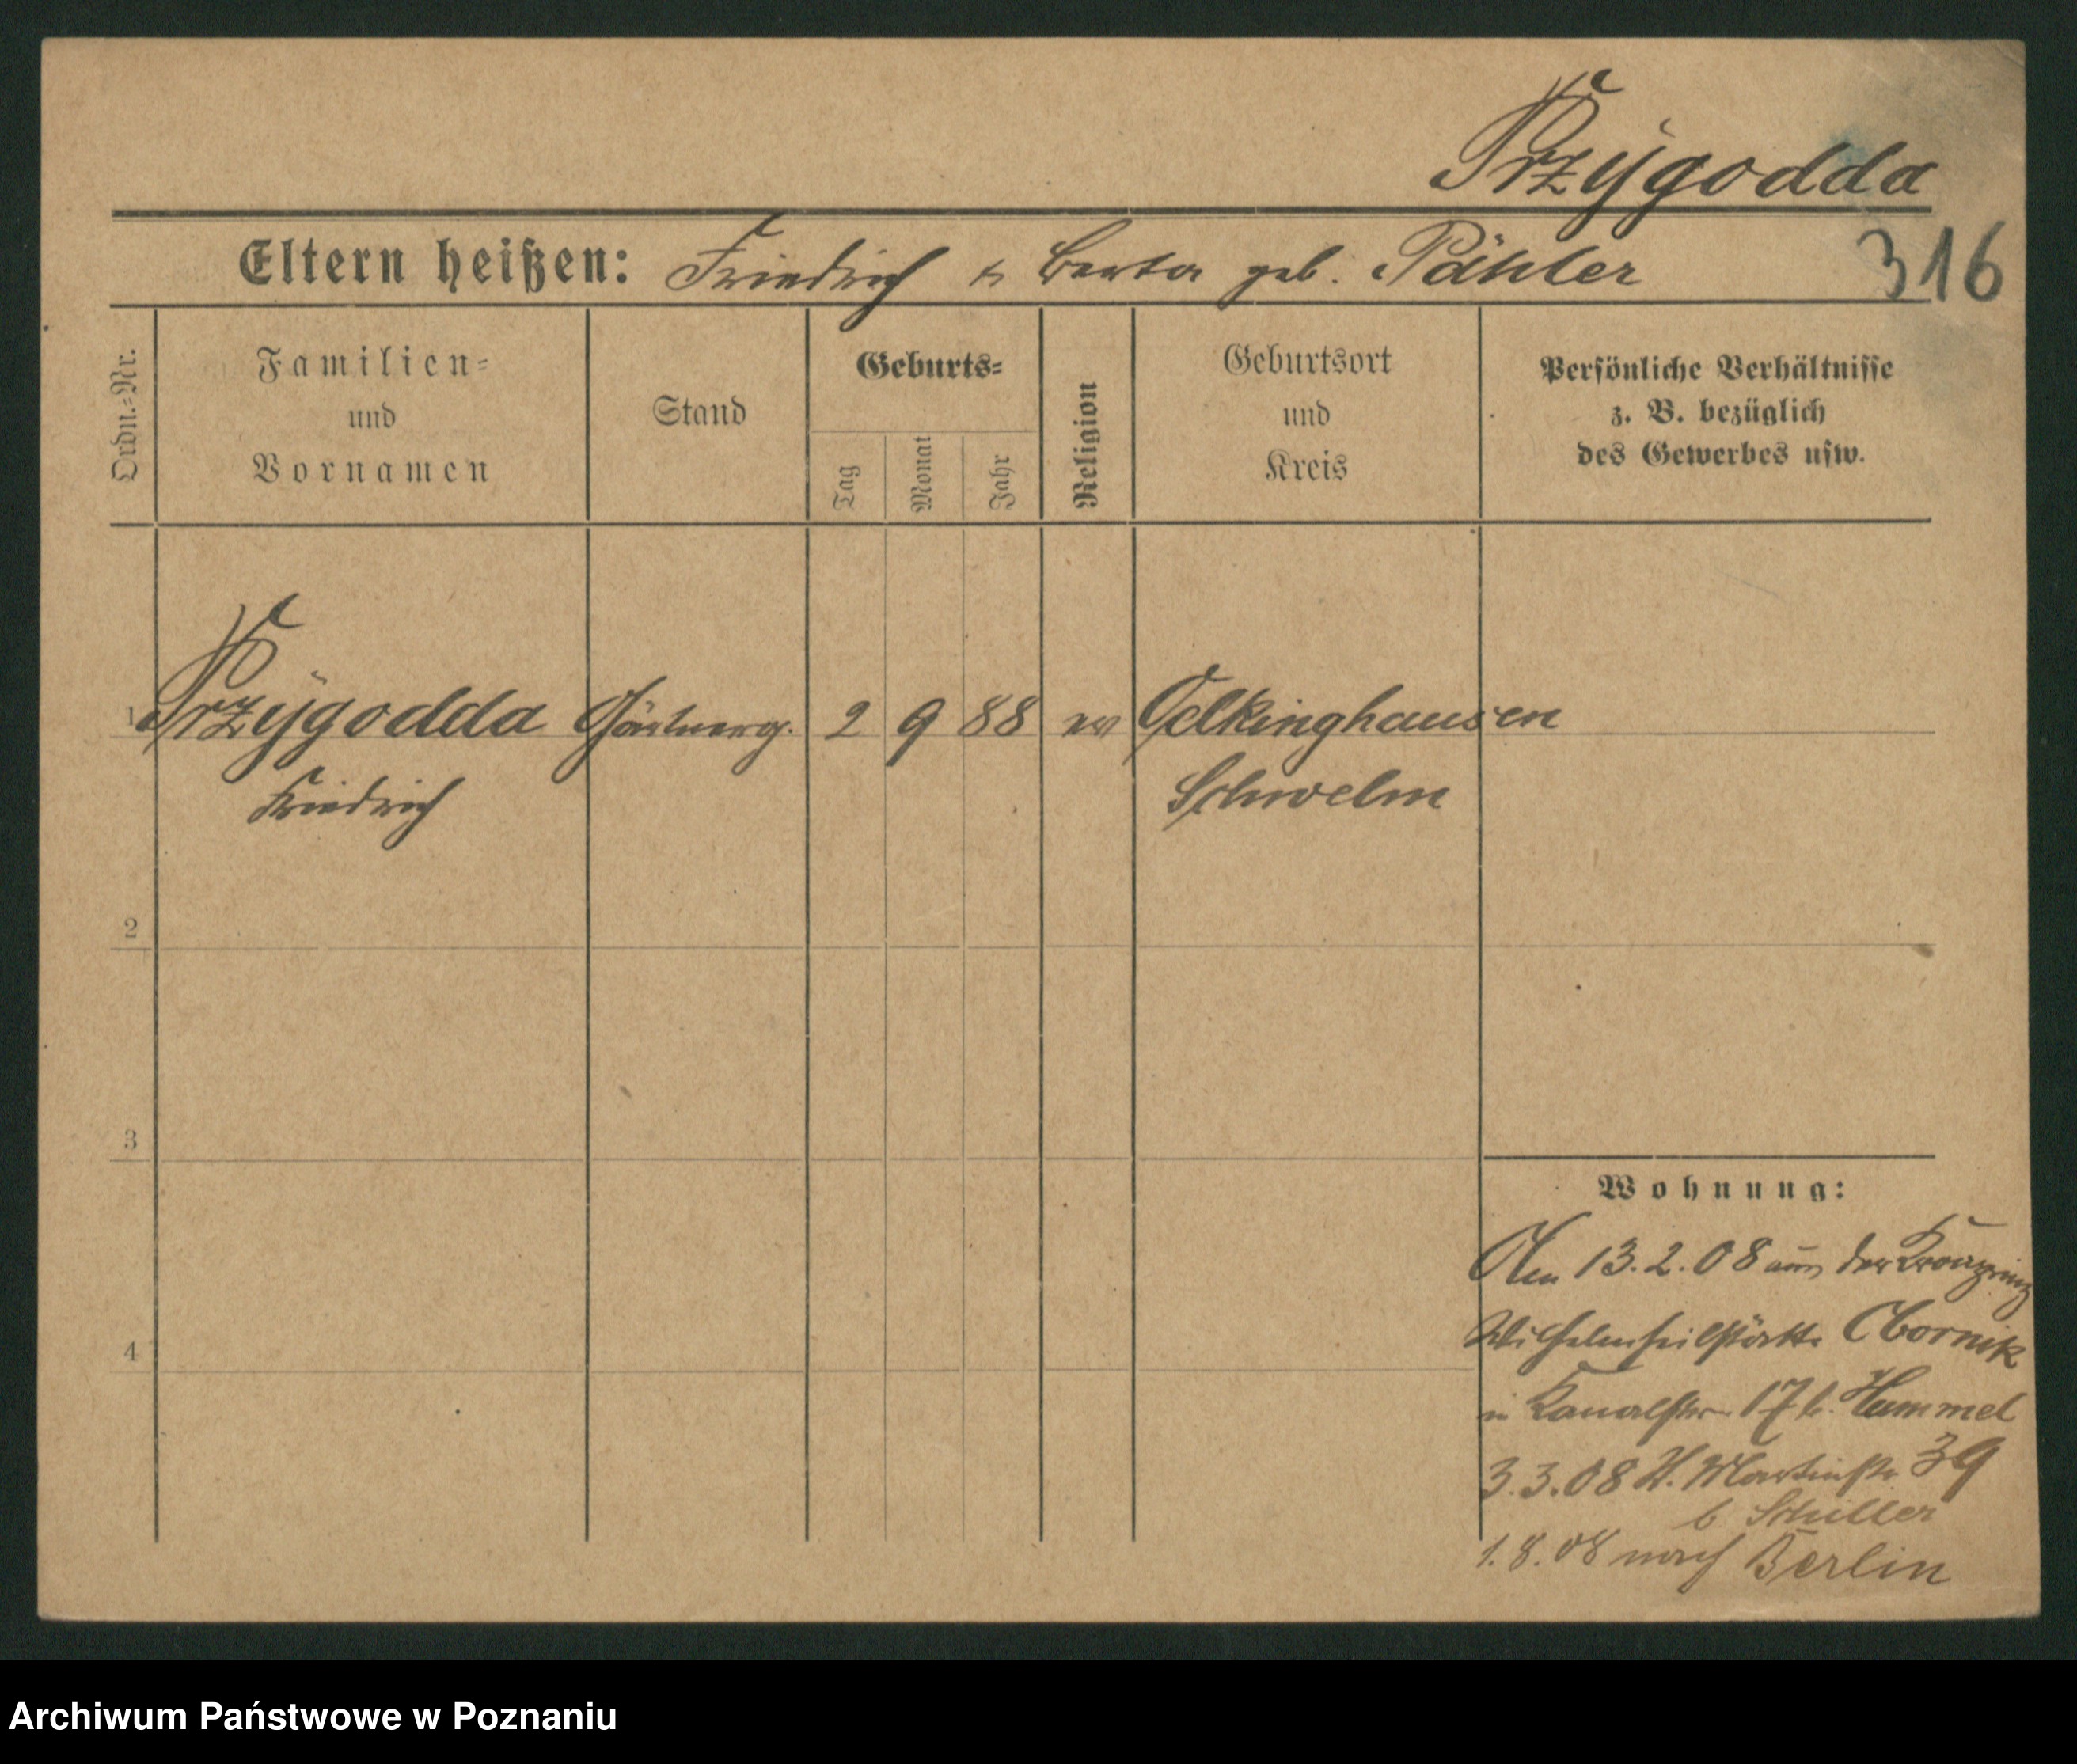 Przygodda
316
Eltern heißen: Friedrich u Berta geb. Pähler
Ordn.-Nr.
Familien-
und
Vornamen
Stand
Geburts-
Tag
Monat
Jahr
Religion
Geburtsort
und
Kreis
Persönliche Verhältnisse
z. B. bezüglich
des Gewerbes usw.
1 Przygodda Gärtnerg. 2 9 88 ev Oelkinghausen
Friedrich Schwelm
2
3
4
Wohnung:
Am 13.2.08 aus der Kronprinz
Wilhelmheilstätte Obornik
in Kanalstr 17 b. Hummel
3.3.08 St. Martinstr. 39
b Schiller
1.8.08 nach Berlin
Archiwum Państwowe w Poznaniu